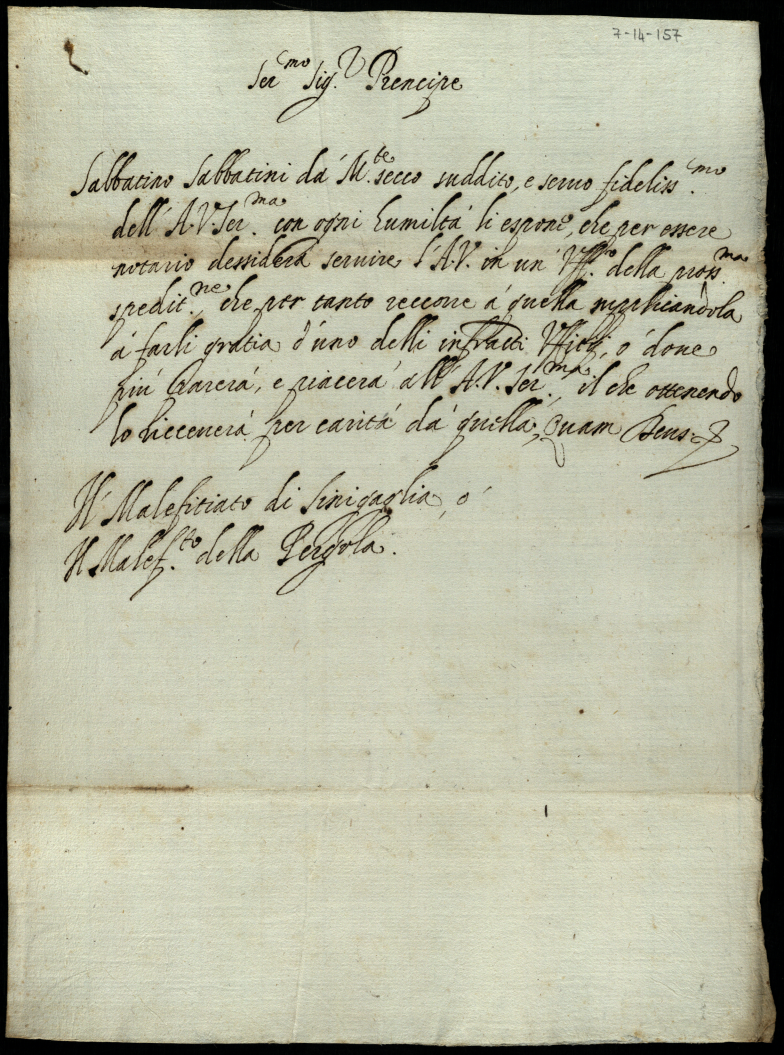 7-14-157
Ser.mo Sig.r Prencipe
Sabbatino Sabbatini da M.te secco suddito, e servo fideliss.mo
dell' A.V. Ser.ma con ogni humiltà li espone, che per essere
notario dessidera servire l'A.V. in un' Uff.o della pross.ma
spedit.ne che per tanto reccorre à quella supplicandola
à farli gratia d'uno delli infra.tti Uffitij, ò dove
più parerà, e piacerà all' A.V. Ser.ma il che ottenendo
lo riceverà per carità dà quella, Quam Deus
Il Malefitiato di Sinigaglia, ò
Il Malef.to della Pergola.